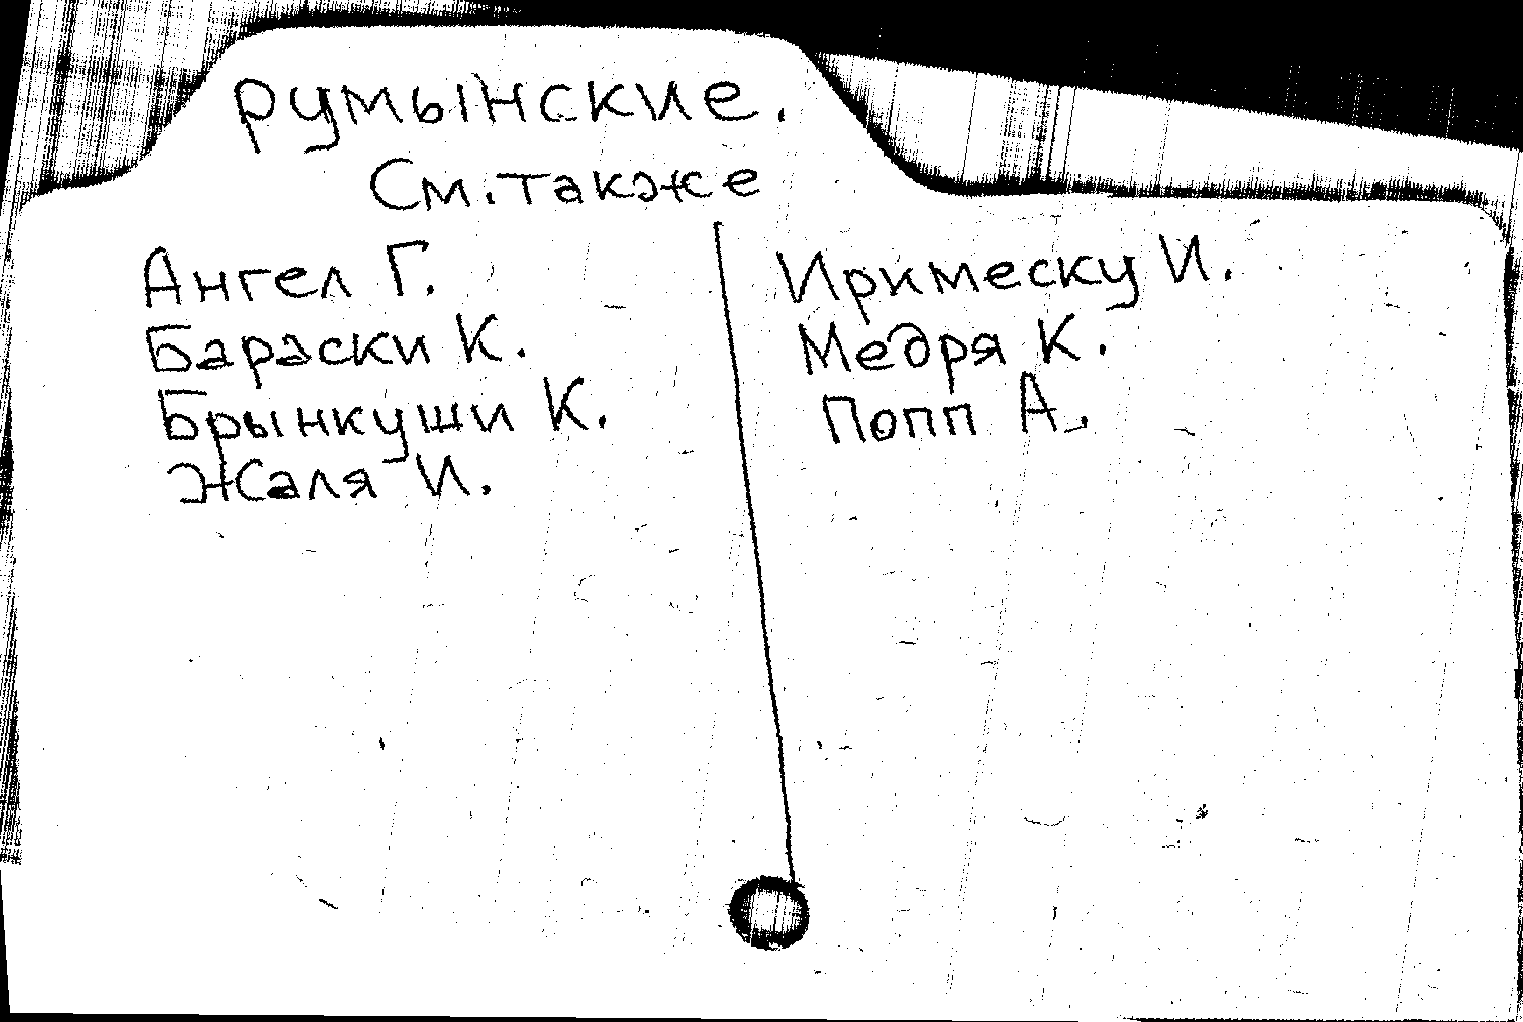 румынские.
См. также
Ангел Г.
Бараски К.
Брынкуши К.
Жаля И.
Иримеску И.
Медря К.
Попп А.